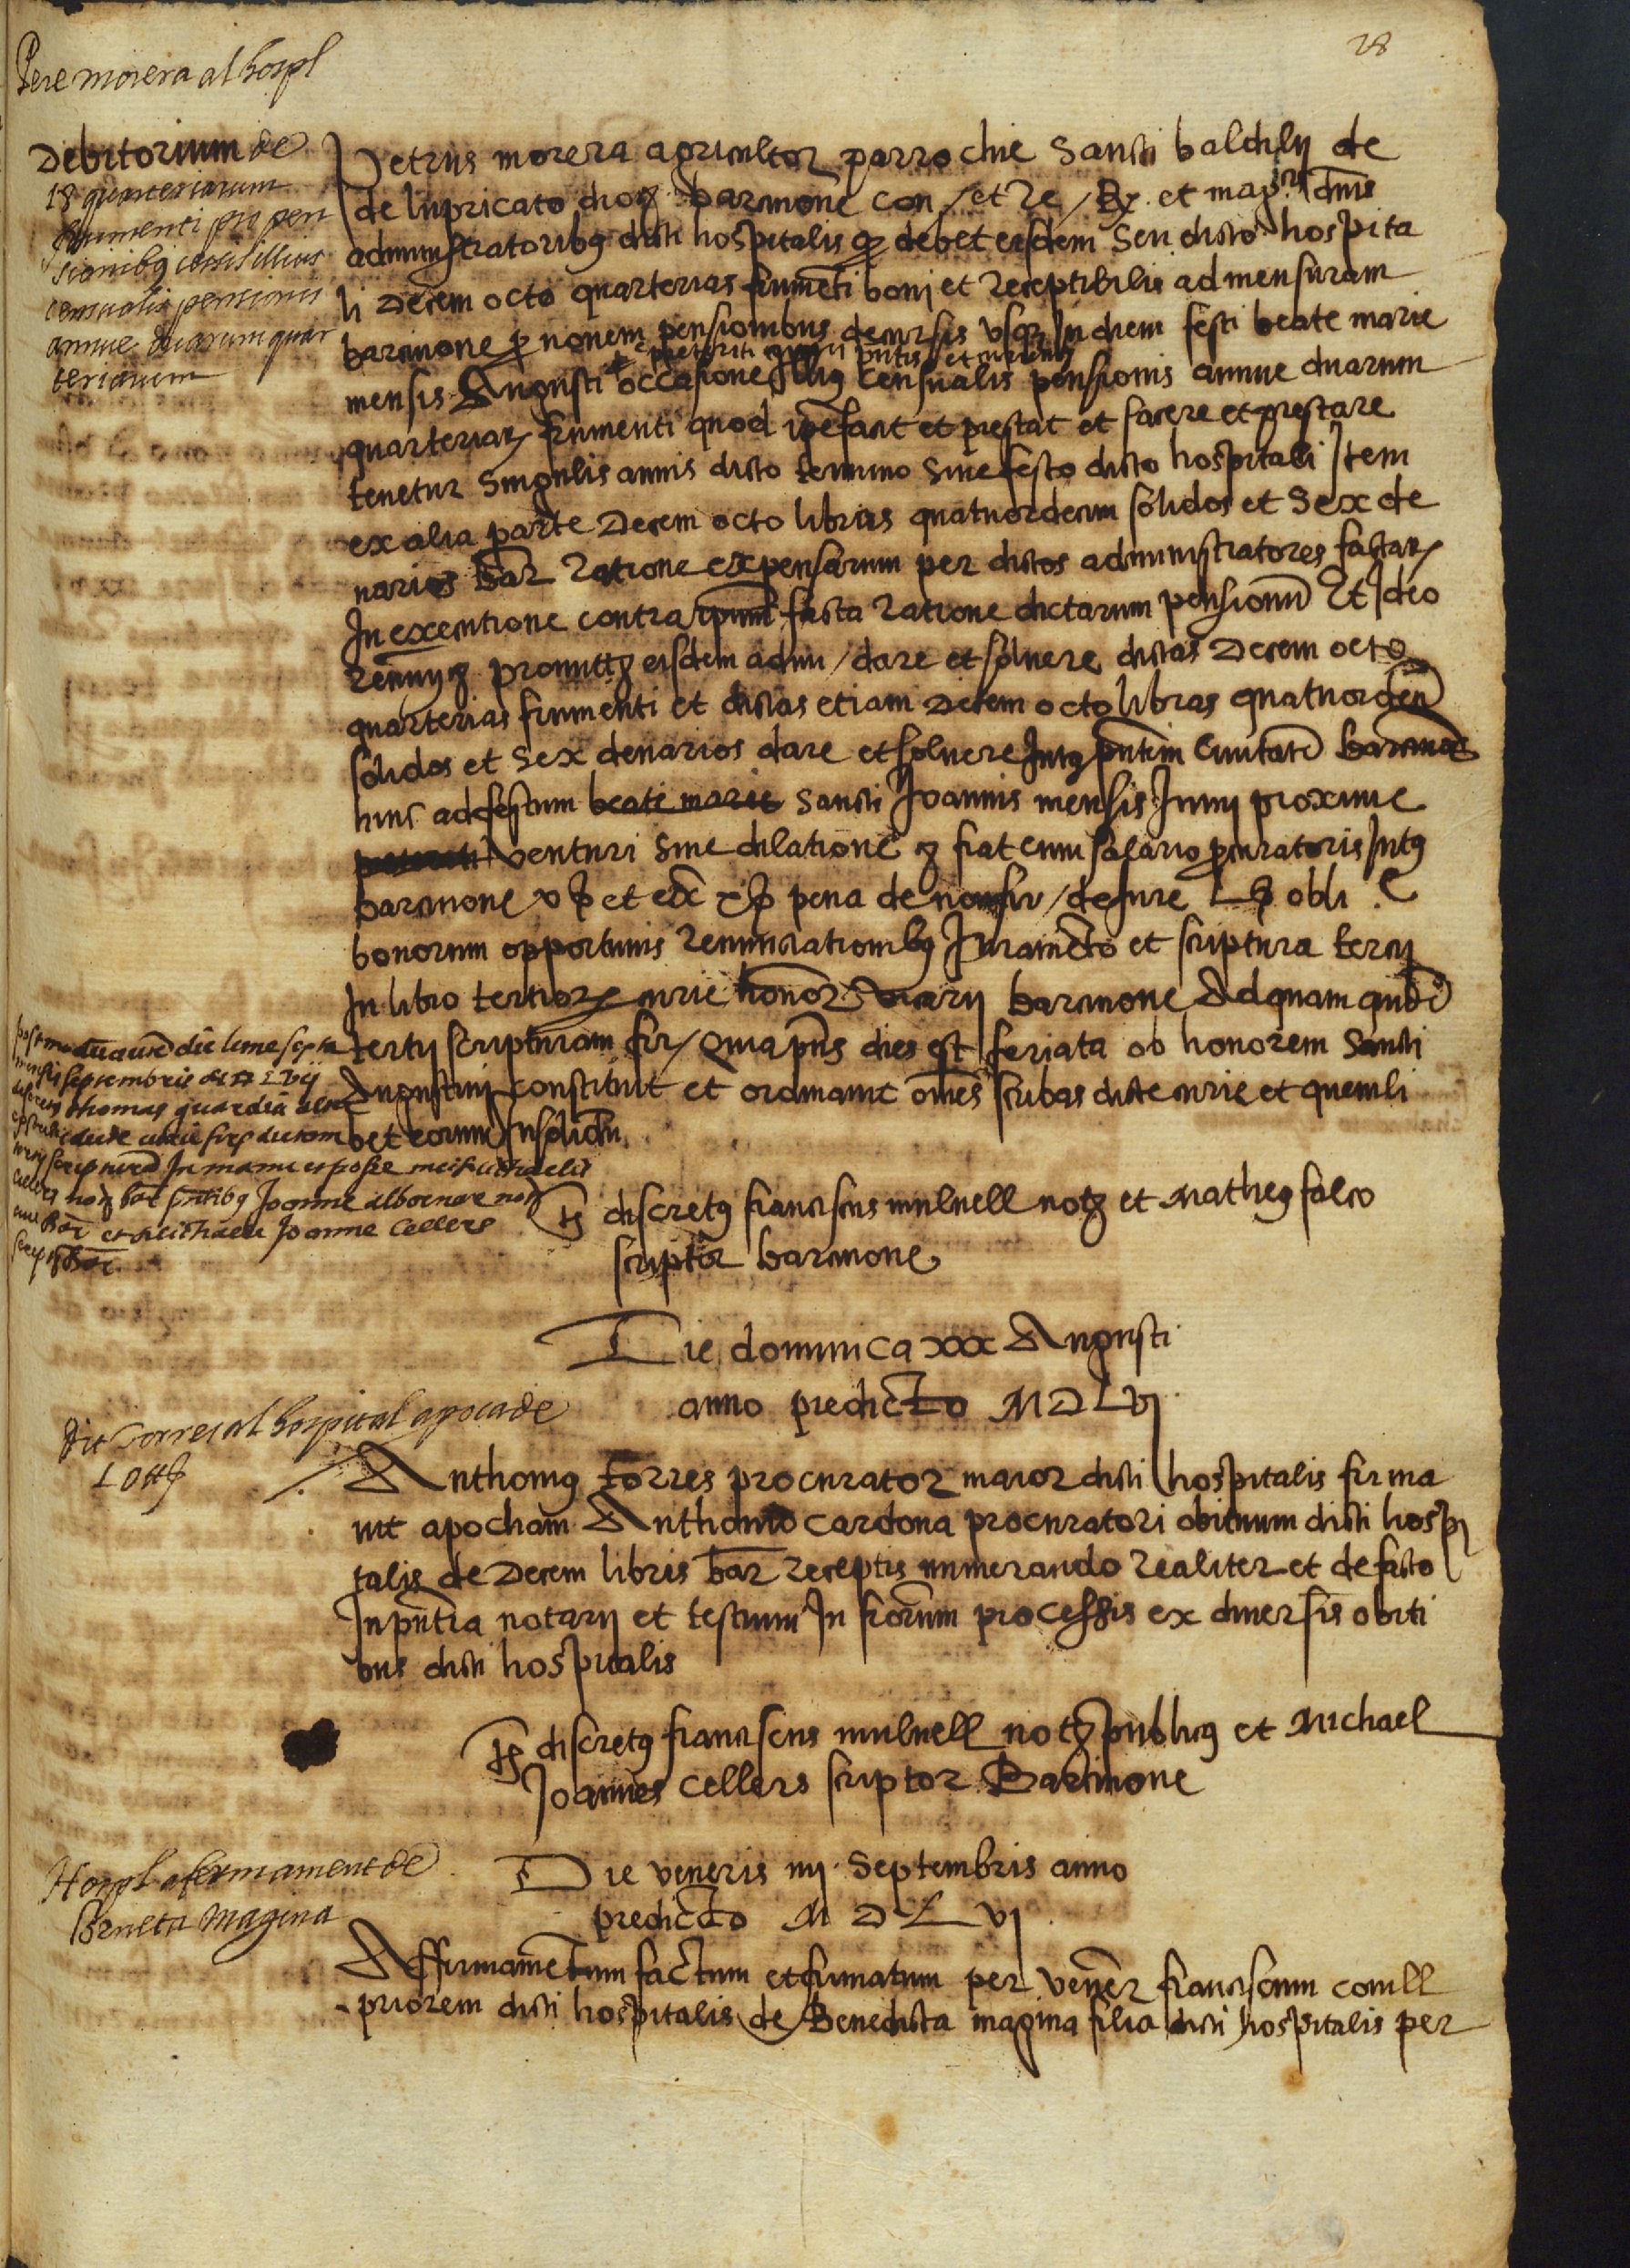 28
Pere morera al hospl
Debitorium de
18 quarteriarum
frumenti pro pen
sionibq
censualis pensionis
annue duarum quar
teriarum
Petrus morera agricultor parrochie Sancti baldilij de
de lupricato dioç barcinone con / et re / R. et magcis dnis
administratoribq dicti hospitalis q debet eisdem seu dicto hospita
li Decem octo quarterias frumēti bonj et receptibilis ad mensuram
barcinone p novem pensionibus decursis usq In diem festi beate marie
preteriti anni pntis et currentis
mensis Augusti occasione illius censualis pensionis annue duarum
quarteriar frumenti quod ipe facit et prestat et facere et prestare
tenetur Singulis annis dicto termino sive festo dicto hospitali Item
ex alia parte Decem octo libras quatuordecim solidos et Sex de
narios Bar ratione expensarum per dictos administratores factar
In executione contra ipsum facta ratione dictarum pensionū Et Ideo
promittq eisdem admi / dare et solvere dictas Decem octo
quarterias frumenti et dictas etiam Decem octo libras quatuordeci
solidos et Sex denarios dare et solvere Intq pntem Civitatē Barcinone
hinc ad festum beate marie Sancti Joannis mensis Junij proxime
preteriti venturi Sine dilatione q fiat cum salario procuratoris Intq
barcinone v ß et ex x ß pena de non fir / de jure L ß obli .
bonorum opportunis renunciationibq Juramēto et scriptura tercij
In libro tertior curie honor vicarij barcinone Ad quam quidē
tertij scripturam fir / Quia pns dies est feriata ob honorem Sancti
Augustini constituit et ordinavit omēs scribas dicte curie et quemli
bet eorum Insolidū
die lune septima
mensis septembris
thomas guardia
dicte curie firt dictam
tercij scripturā In manu et posse mei Michaelis
Cellers not bar pntibq Joanne albornar
Bar et Michaele Joanne Cellers
scrip Bar.
Ts discretq franciscus mulnell notq et Matheq falco
scriptor barcinone
Die dominica xxx Augusti
anno predicto M D L vj
Ait Torres al hospital apoca de
L 0 ttß
Anthoniq Torres procurator maior dicti hospitalis firma
vit apocham Anthonio cardona procuratori obituum dicti hospi
talis de Decem libris bar receptis numerando realiter et de facto
In pntia notarij et testium Infrorum processis ex diversis obiti
bus dicti hospitalis
Ts discretq franciscus mulnell notq publicq et Michael
Joannes cellers scriptor Barcinone
Hospl afermament de
Beneta Magina
Die veneris iiij Septembris anno
predicto M D L vj
Affirmamētum factum et firmatum per vener franciscum comll
priorem dicti hospitalis de Benedicta magina filia dicti hospitalis per